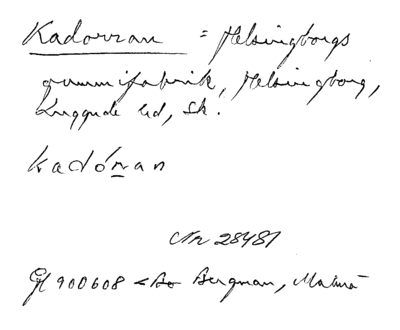 Kadornan = Helsingborgs
gummifabrik, Helsingborg,
Luggude hd, Sk.
kadónan
Nr 28481
Gl 900608 < Bo Bergman, Malmö